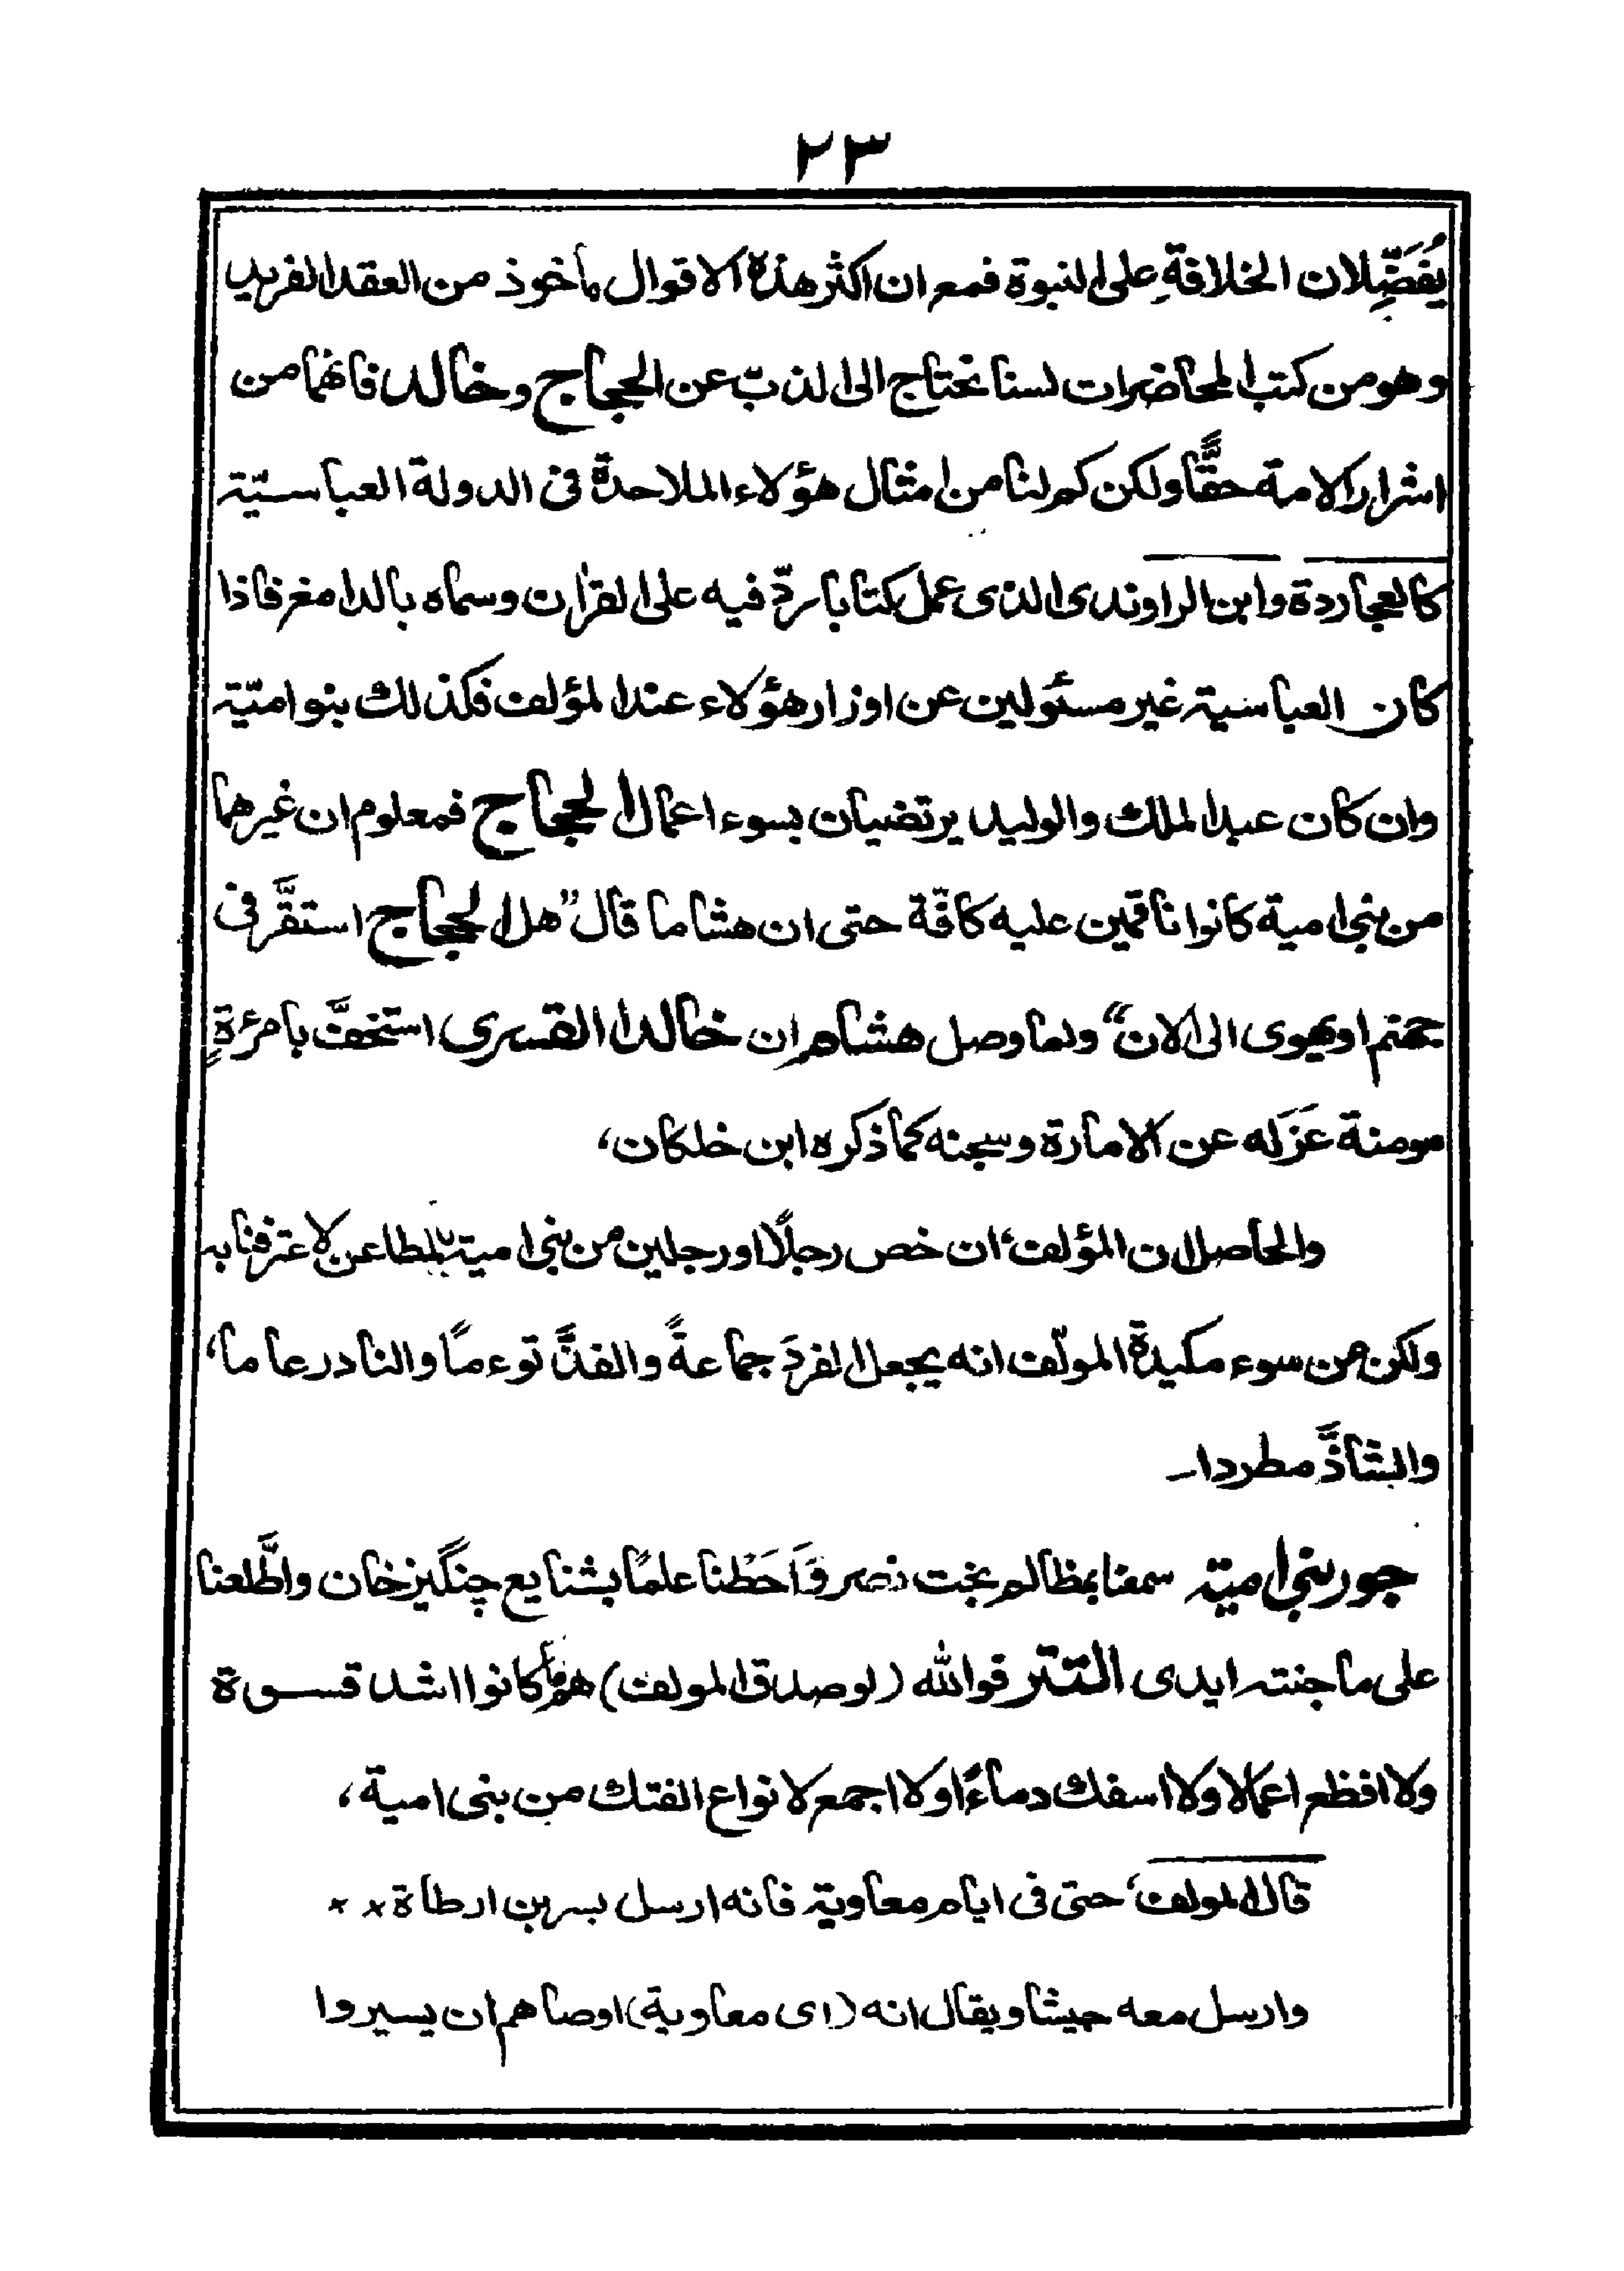 ٢٣
يُفَضِّلان الخلافةِ على النبوة فمع ان اكثر هذه الاقوال مأخوذ من العقد الفريد
وهو من كتب المحاضرات لسنا نحتاج الى الذبّ عن الحجاج وخالد فانهما من
اشرار الامة حقًّا ولكن كم لنا من امثال هؤلاء الملاحدة فى الدولة العباسيّة
كالعجاردة وابن الراوندى الذى عمل كتابا ردّ فيه على القرآن وسماه بالدامغ فاذا
كان العباسية غير مسئولين عن اوزار هؤلاء عند المؤلف فكذلك بنو اميّة
وان كان عبد الملك والوليد يرتضيان بسوء اعمال الحجاج فمعلوم ان غيرهما
من بنى امية كانوا ناقمين عليه كافّة حتى ان هشاما قال "هل الحجاج استقَّر فى
جهنم او يهوى الى الان" ولما وصل هشام ان خالدا القسرى استخفَّ بامرءةٍ
مومنة عَزَله عن الامارة وسجنه كما ذكره ابن خلكان،
والحاصل ان المؤلف، ان خص رجلًا او رجلين من بنى امية بالمطاعن لاعترفنا به
ولكن من سوء مكيدة المولّف انه يجعل الفردَ جماعةً والفذَّ توءمًا والنادر عاما،
والشاذَّ مطردا۔
جور بنى امية سمعنا بمظالم بخت نصر وَاَحَطْنا علمًا بشنايع چنگيز خان واطَّلعنا
على ما جنته ايدى التتر فوالله (لو صدق المولف) هم ما كانوا اشد قسوة
ولا افظع اعمالا ولا اسفك دماءً او لا اجمع لانواع الفتك من بنى امية،
قال المولف، حتى فى ايام معاوية فانه ارسل بسر بن ارطاة × ×
وارسل معه جيشا ويقال انه (اى معاوية) اوصاهم ان يسيروا